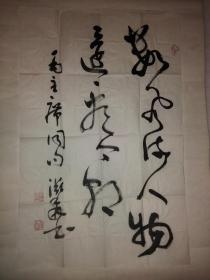 数风流人物
还看今朝
毛主席词句